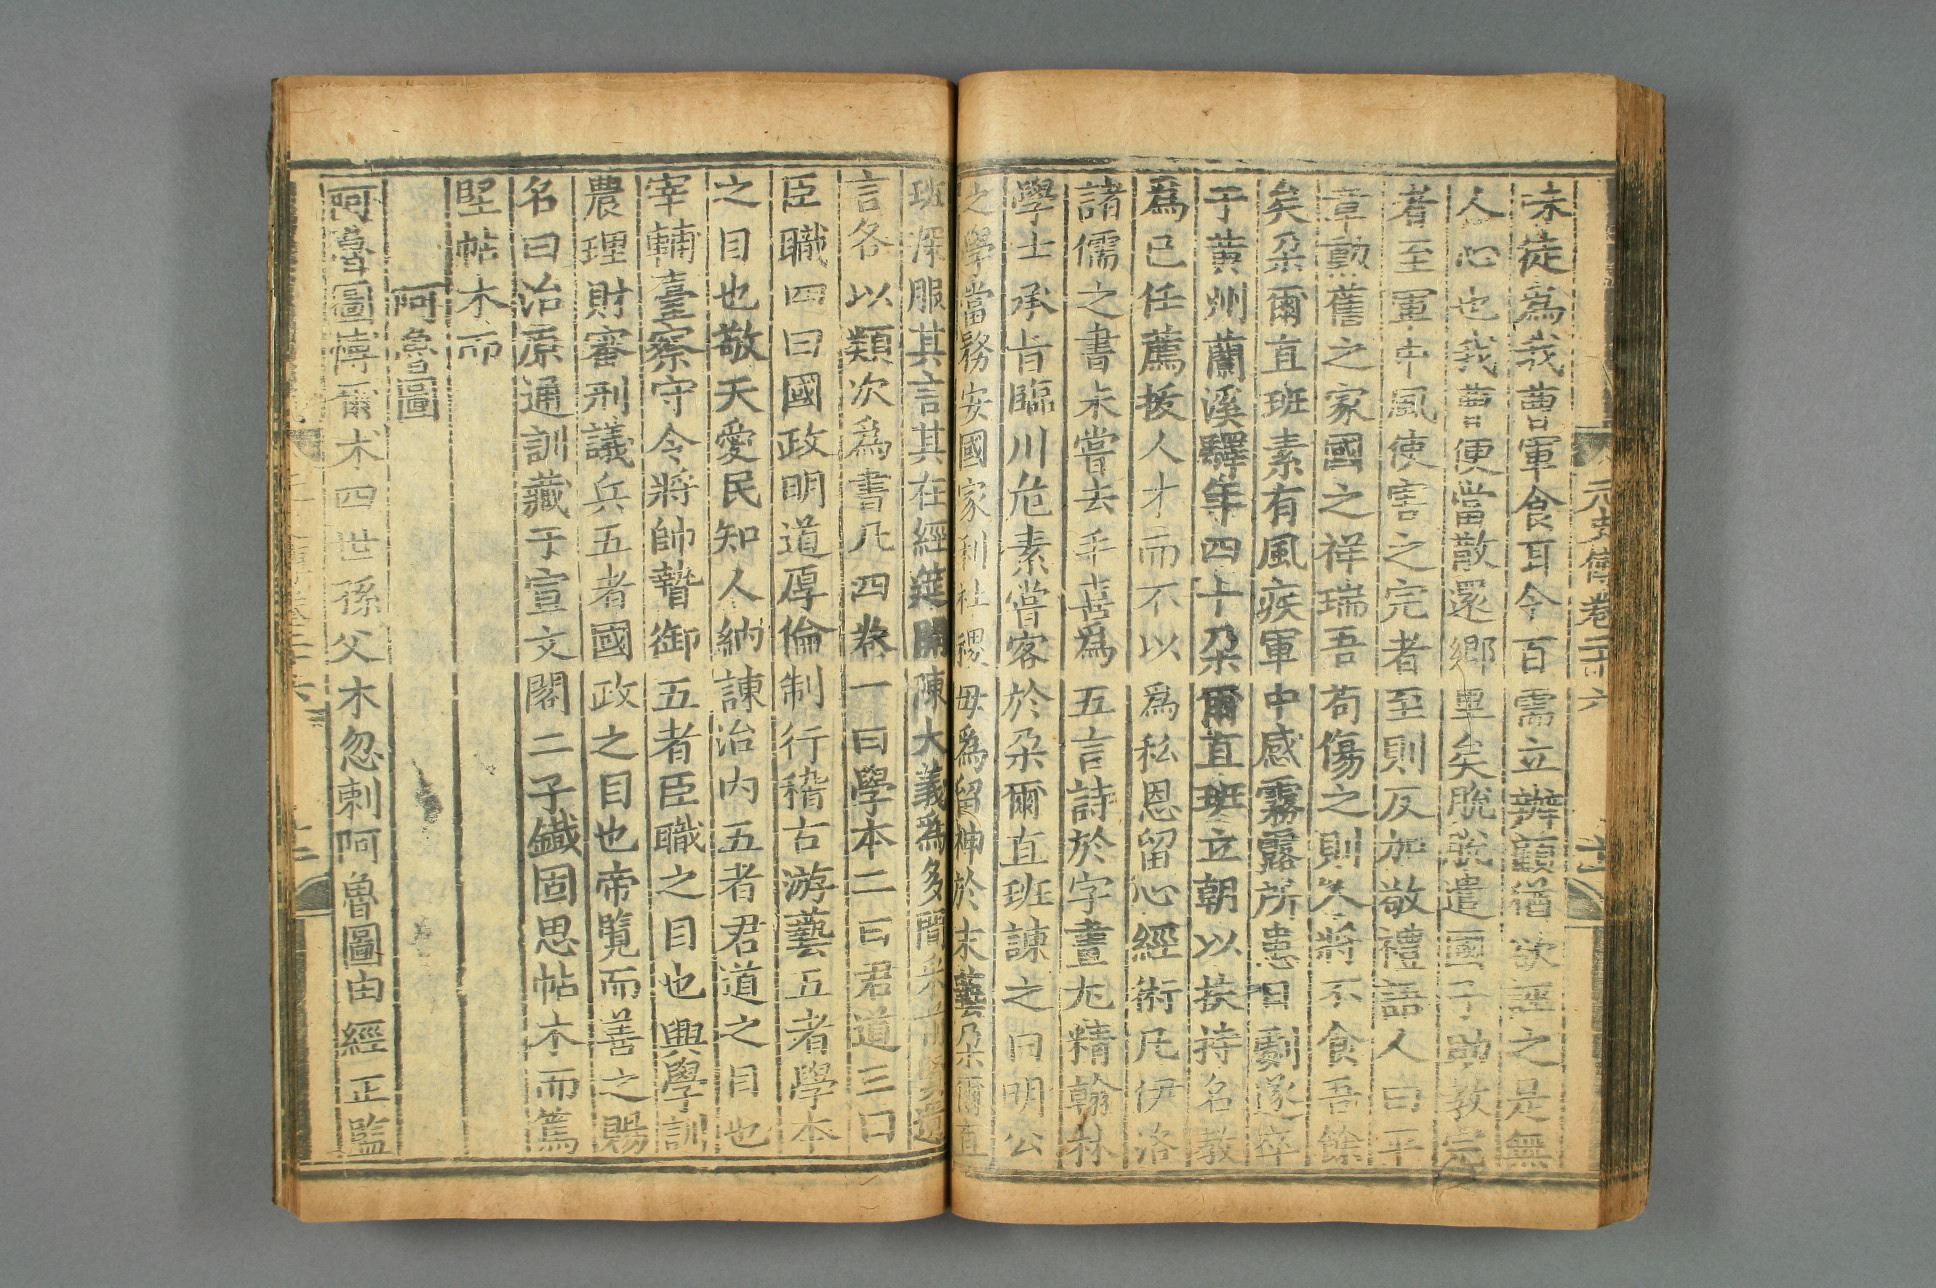 元史傳卷二十六
未徒為我曹軍食耳今百需立辦顧猶欲誣之是無
人心也我曹便當散還鄉里矣脫脫遣國子助教完
者至軍中風使害之完者至則反加敬禮語人曰平
章勳舊之家國之祥瑞吾苟傷之則人將不食吾餘
矣朶爾直班素有風疾軍中感霧露所患日劇遂卒
于黃州蘭溪驛年四十朶爾直班立朝以扶持名教
爲已任薦拔人才而不以爲私恩留心經術凡伊洛
諸儒之書未嘗去手喜爲五言詩於字畫尤精翰林
學士承旨臨川危素嘗客於朶爾直班諫之曰明公
之學當務安國家利社稷毋爲留神於末藝朶爾直
班深服其言其在經筵開陳大義爲多間采前賢遺
言各以類次爲書凡四卷一曰學本二曰君道三曰
臣職四曰國政明道厚倫制行稽古游藝五者學本
之目也敬天愛民知人納諫治内五者君道之目也
宰輔臺察守令將帥䞇御五者臣職之目也興學訓
農理財審刑議兵五者國政之目也帝覽而善之賜
名曰治原通訓藏于宣文閣二子鐵固思帖木而篤
堅帖木而
阿魯圖
阿魯圖博爾术四世孫父木忽剌阿魯圖由經正監